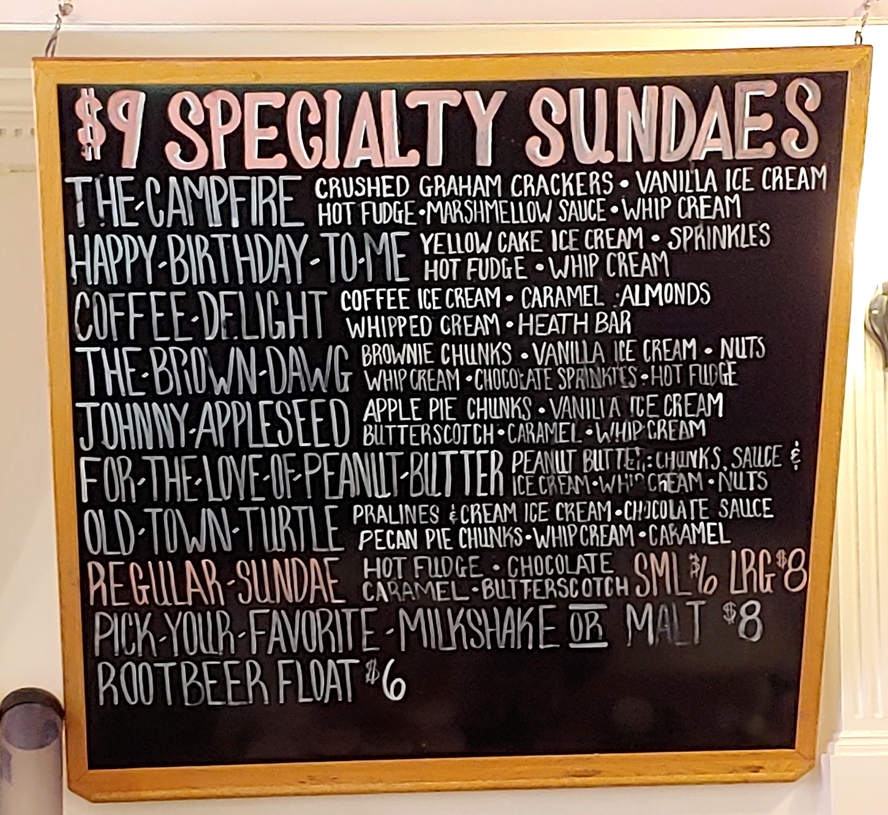 $9 SPECIALTY SUNDAES
THE-CAMPFIRE CRUSHED GRAHAM CRACKERS • VANILLA ICE CREAM
HOT FUDGE • MARSHMELLOW SAUCE • WHIP CREAM
HAPPY-BIRTHDAY-TO-ME YELLOW CAKE ICE CREAM • SPRINKLES
HOT FUDGE • WHIP CREAM
COFFEE-DELIGHT COFFEE ICE CREAM • CARAMEL • ALMONDS
WHIPPED CREAM • HEATH BAR
THE-BROWN-DAWG BROWNIE CHUNKS • VANILLA ICE CREAM • NUTS
WHIP CREAM • CHOCOLATE SPRINKLES • HOT FUDGE
JOHNNY-APPLESEED APPLE PIE CHUNKS • VANILLA ICE CREAM
BUTTERSCOTCH • CARAMEL • WHIP CREAM
FOR-THE-LOVE-OF-PEANUT-BUTTER PEANUT BUTTER: CHUNKS, SAUCE &
ICE CREAM • WHIP CREAM • NUTS
OLD-TOWN-TURTLE PRALINES & CREAM ICE CREAM • CHOCOLATE SAUCE
PECAN PIE CHUNKS • WHIP CREAM • CARAMEL
REGULAR-SUNDAE HOT FUDGE • CHOCOLATE SML $6 LRG $8
CARAMEL • BUTTERSCOTCH
PICK-YOUR-FAVORITE-MILKSHAKE OR MALT $8
ROOTBEER FLOAT $6